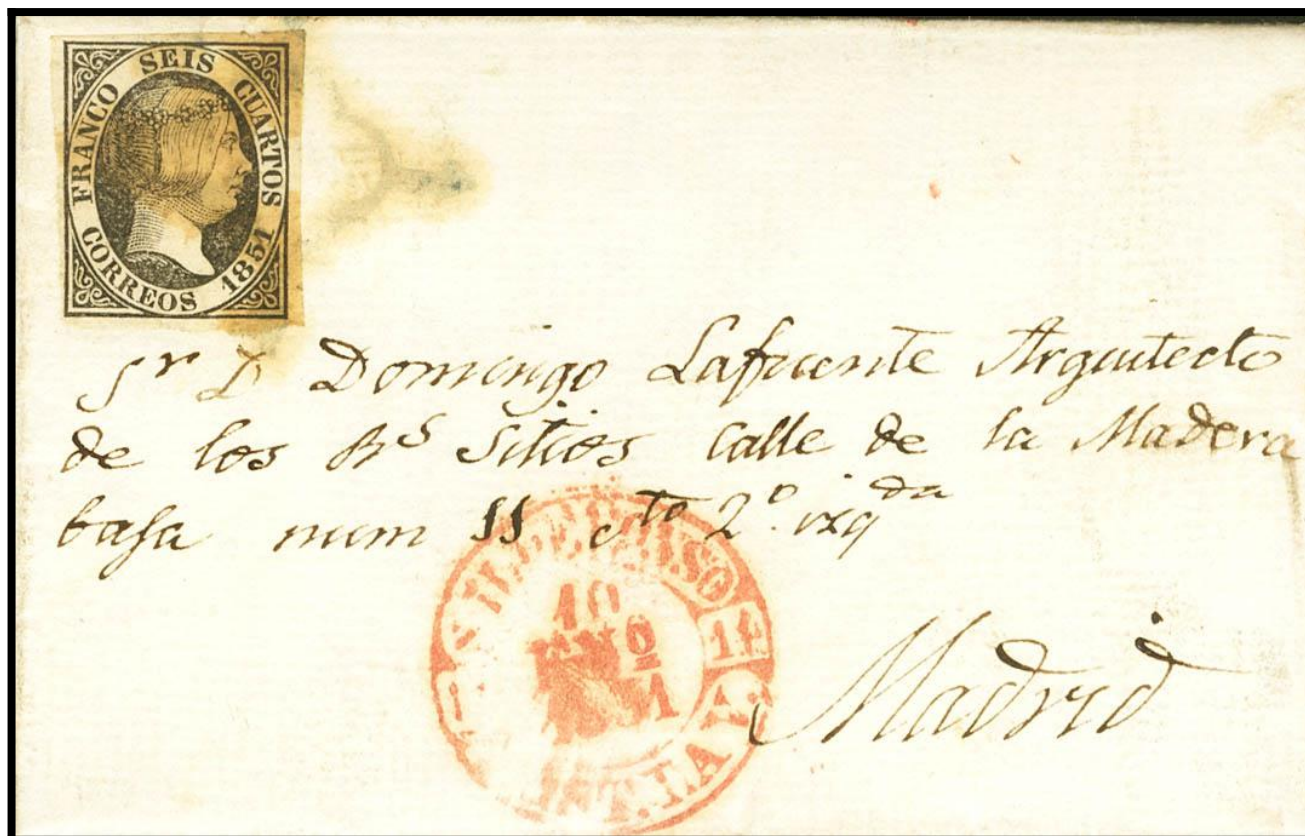 FRANCO SEIS CUARTOS
CORREOS 1851
Sr D Domingo Lafuente Arquitecto
de los Rs Sitios Calle de la Madera
baja num 11 cto 2º izqda
S. ILDEFONSO
10
ENº
14
Madrid